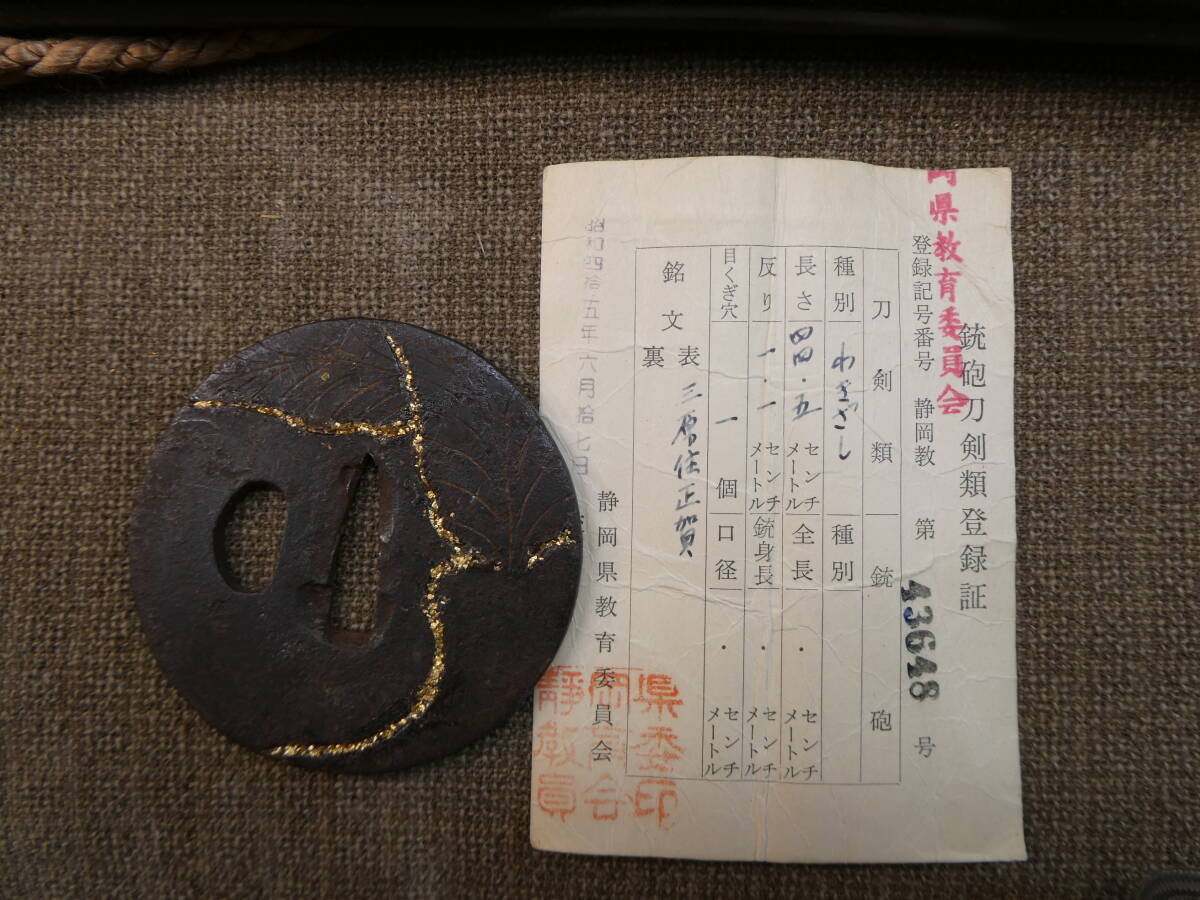 岡県教育委員会
銃砲刀剣類登録証
登録記号番号 静岡教 第 43648 号
刀剣類 銃砲
種別 わきざし 種別
長さ 四四・五 センチメートル 全長 ・ センチメートル
反り 一・一 センチメートル 銃身長 ・ センチメートル
目くぎ穴 一 個 口径 ・ センチメートル
銘文 表 三原住正賀
裏
昭和四拾五年六月拾七日
静岡県教育委員会
県委印
岡育会
静教員